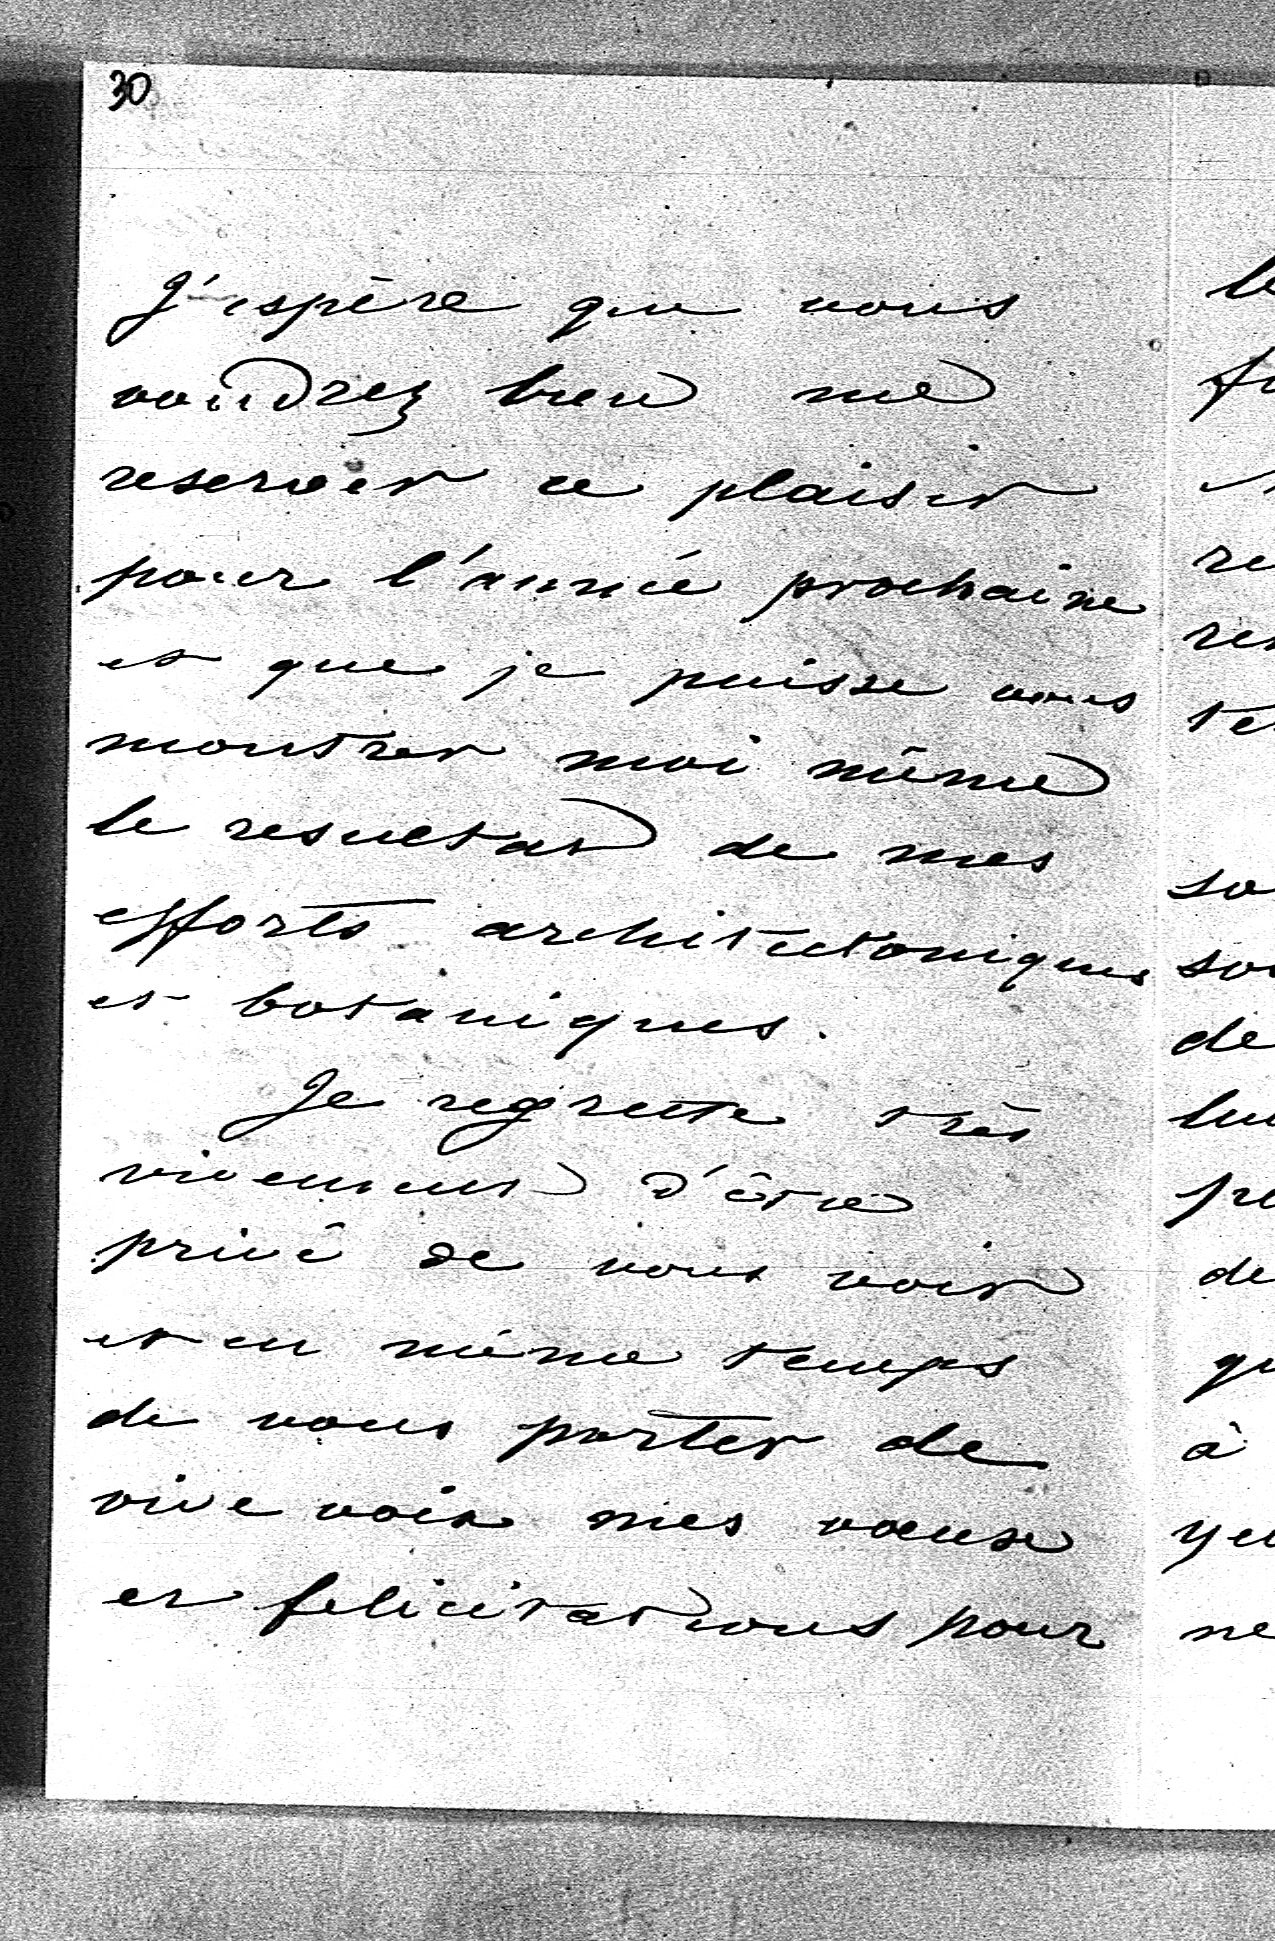 30
J'espère que vous
voudrez bien me
reserver ce plaisir
pour l'année prochaine
et que je puisse vous
montrer moi même
le resultat de mes
efforts architectoniques
et botaniques.
Je regrette très
vivement d'être
privé de vous voir
et en même temps
de vous porter de
vive voix mes vœux
et felicitations pour